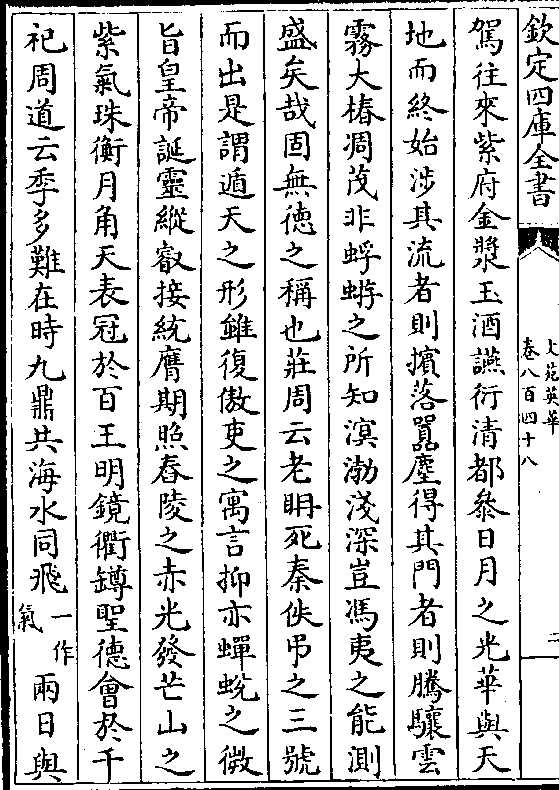 欽定四庫全書
文苑英華
卷八百四十八
二
駕往來紫府金漿玉酒讌衎清都叅日月之光華與天
地而終始涉其流者則擯落囂塵得其門者則騰驤雲
霧大椿凋茂非蜉蝣之所知溟渤淺深豈馮夷之能測
盛矣哉固無德之稱也莊周云老耼死秦佚弔之三號
而出是謂遁天之形雖復傲吏之寓言抑亦蟬蛻之微
旨皇帝誕靈縱叡接統膺期照舂陵之赤光發芒山之
紫氣珠衡月角天表冠於百王明鏡衢罇聖德會於千
祀周道云季多難在時九鼎共海水同飛一作氣兩日與